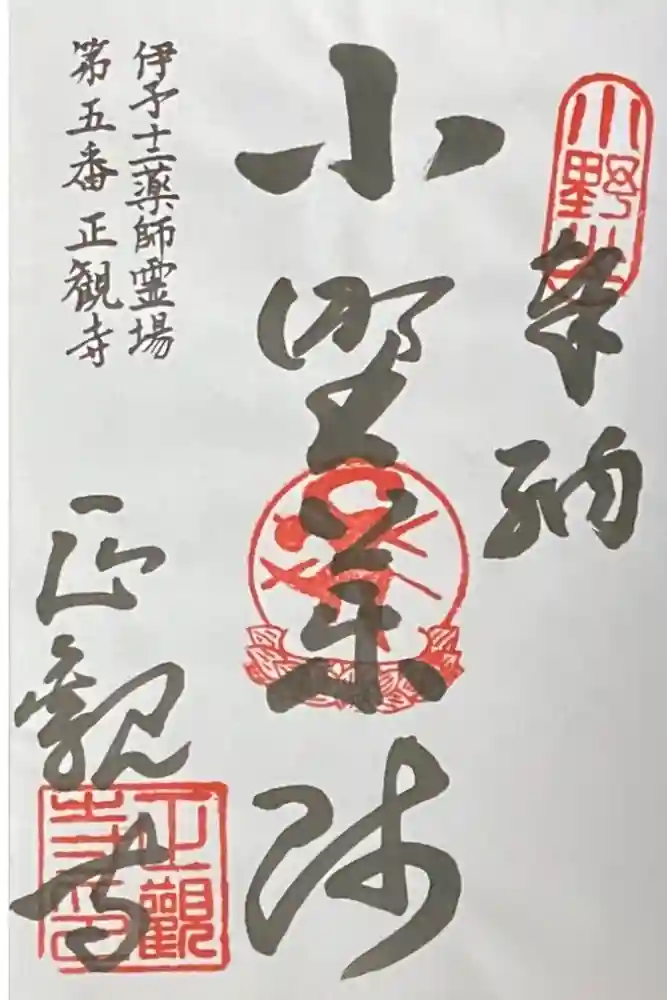 小野山
奉納
小野薬師
伊予十二薬師霊場
第五番 正観寺
正観寺
正觀
寺印